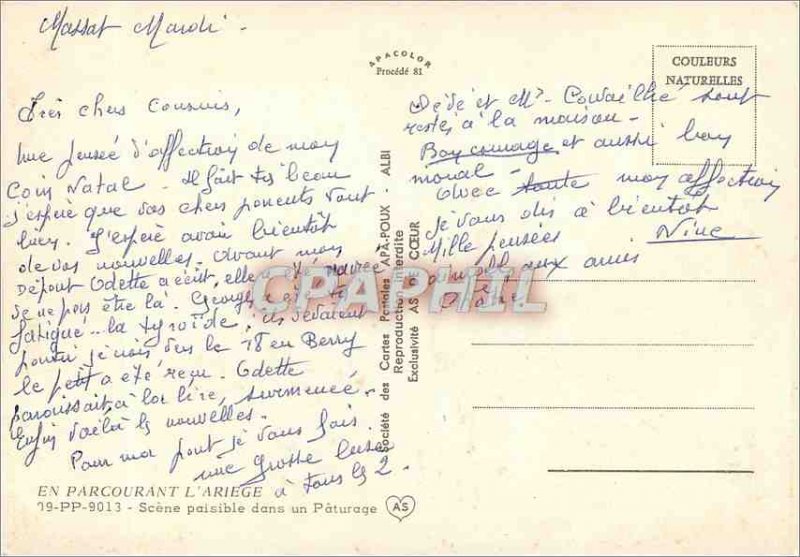 Massat Mardi.
Très chers Cousins,
Une pensée d'affection de mon
Coin Natal. Il fait très beau
J'espère que vos chers parents vont
bien. J'espère avoir bientôt
de vos nouvelles. Avant mon
départ Odette a écrit, elle a été navrée
de ne pas être là. a été très
fatiguée.. la tyroïde, ils devaient
partir je crois vers le 18 en Berry
le petit a été reçu. Odette
paraissait, à la lire, surmenée.
Enfin voilà les nouvelles.
Pour ma part je vous fais
une grosse bise
à tous les 2.
EN PARCOURANT L'ARIEGE
79-PP-9013 - Scène paisible dans un Pâturage
AS
APACOLOR
Procédé 81
Société des Cartes Postales APA-POUX - ALBI
Reproduction interdite
Exclusivité AS DE CŒUR
COULEURS
NATURELLES
Dédé et Me sont
restés à la maison.
Bon courage et aussi bon
moral.
Avec toute mon affection
je vous dis à bientôt
Mille pensées Nine
aux amis
CPAPHIL